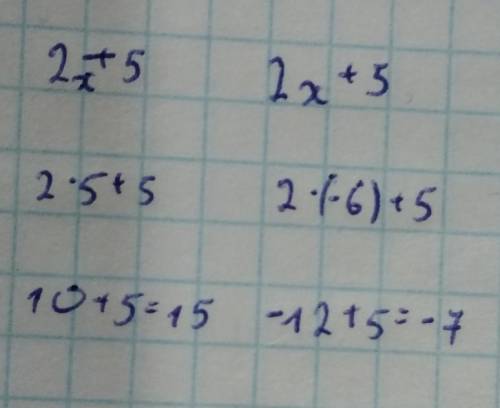 2x+5 2x+5
2·5+5 2·(-6)+5
10+5=15 -12+5=-7